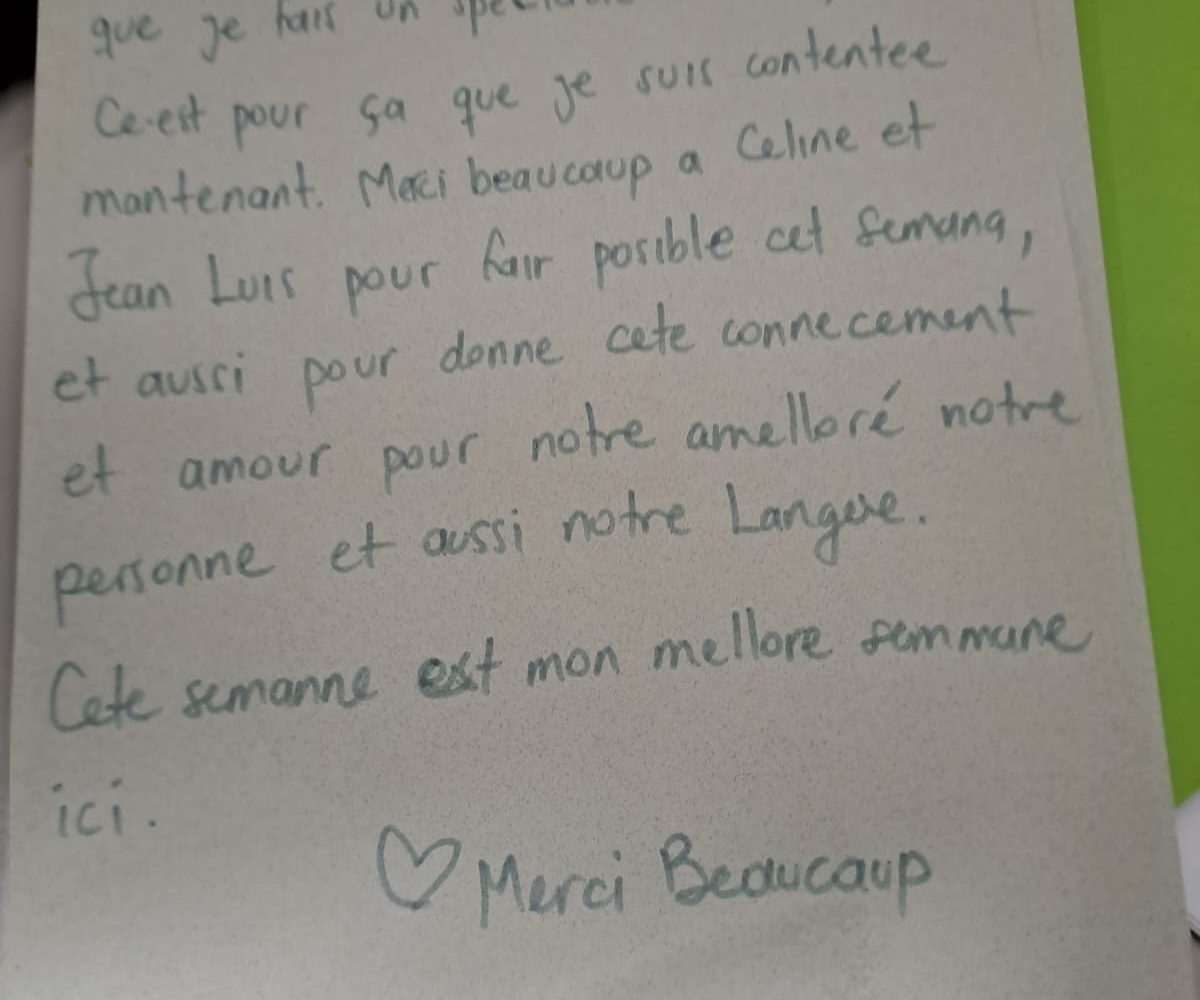 que je fais un
Ce-est pour ça que je suis contentee
mantenant. Merci beaucaup a Celine et
Jean Luis pour fair posible cet semana,
et aussi pour donne cete connecement
et amour pour notre amelloré notre
personne et aussi notre Langue.
Cete semanne est mon mellore semmane
ici.
♡ Merci Beaucaup